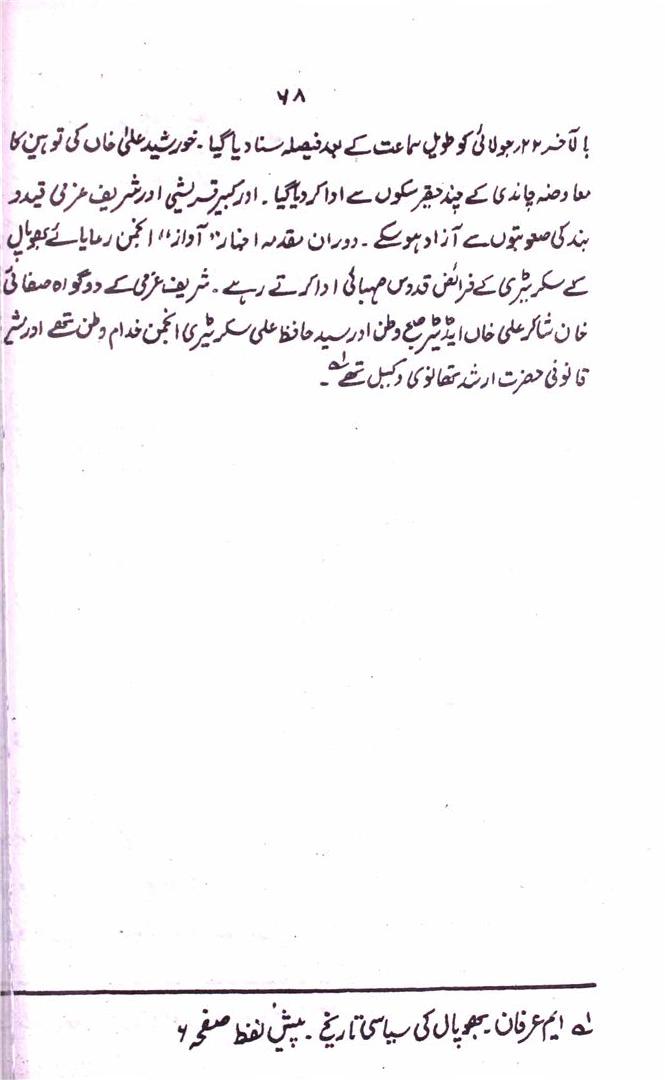 ۶۸
بالآخر ۲۲؍جولائی کو طویل سماعت کے بعد فیصلہ سنا دیا گیا ۔ خورشید علی خاں کی توہین کا
معاوضہ چاندی کے چند حقیر سکوں سے ادا کر دیا گیا ۔ اور کبیر قریشی اور شریف عزمی قید و
بند کی صعوبتوں سے آزاد ہو سکے ۔ دوران مقدمہ اخبار "آواز" انجمن رعایائے بھوپال
کے سکریٹری کے فرائض قدوس صہبائی ادا کرتے رہے ۔ شریف عزمی کے دو گواہ صفائی
خان شاکر علی خاں ایڈیٹر صبح وطن اور سید حافظ علی سکریٹری انجمن خدام وطن تھے اور
قانونی حضرت ارشد تھانوی وکیل تھے لہ ۔
لہ ایم عرفان ۔ بھوپال کی سیاسی تاریخ ۔ پیش لفظ صفحہ ۶